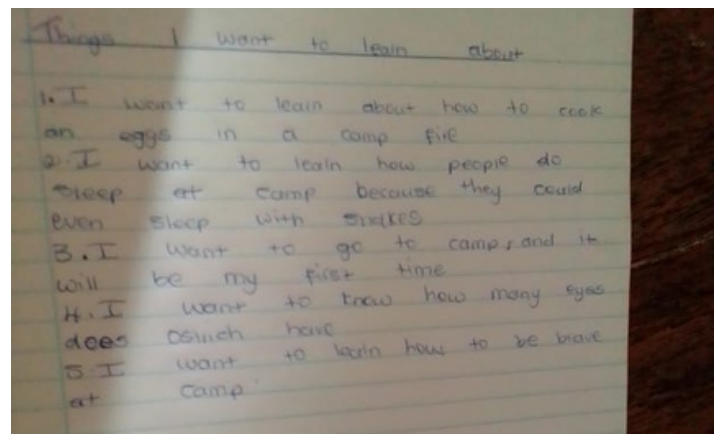 Things I want to learn about
1. I want to learn about how to cook
an eggs in a camp fire
2. I want to learn how people do
sleep at camp because they could
even sleep with snakes
3. I want to go to camp, and it
will be my first time
4. I want to know how many eyes
does osinch have
5 I want to learn how to be brave
at camp